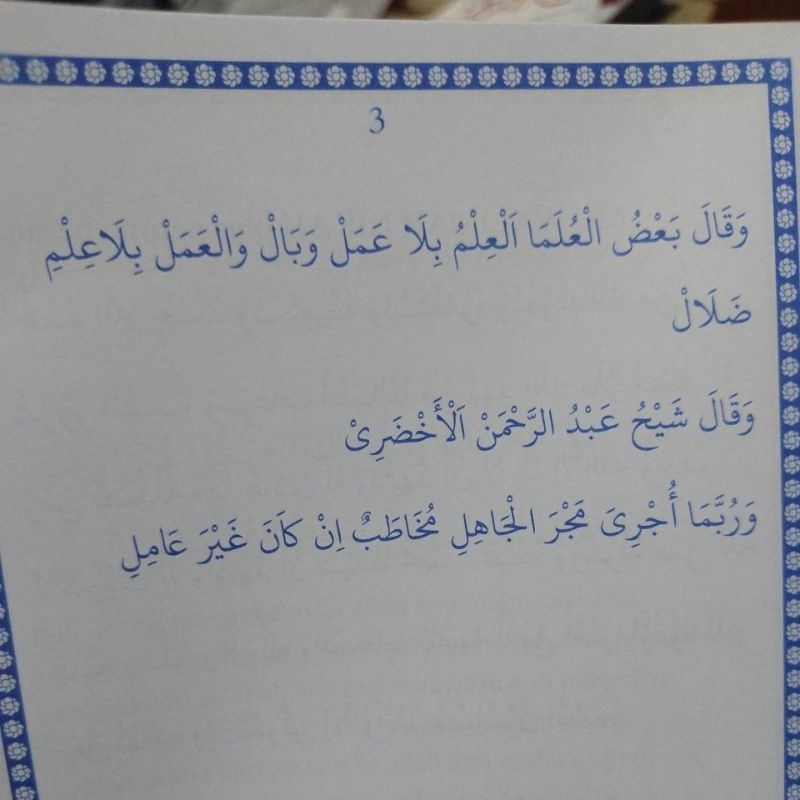 3
وَقَالَ بَعْضُ الْعُلَمَا اَلْعِلْمُ بِلَا عَمَلْ وَبَالْ وَالْعَمَلْ بِلَاعِلْمِ
ضَلَالْ
وَقَالَ شَيْخُ عَبْدُ الرَّحْمَنْ اَلْأَخْضَرِىْ
وَرُبَّمَا أُجْرِىَ مَجْرَ الْجَاهِلِ مُخَاطَبٌ اِنْ كَانَ غَيْرَ عَامِلِ